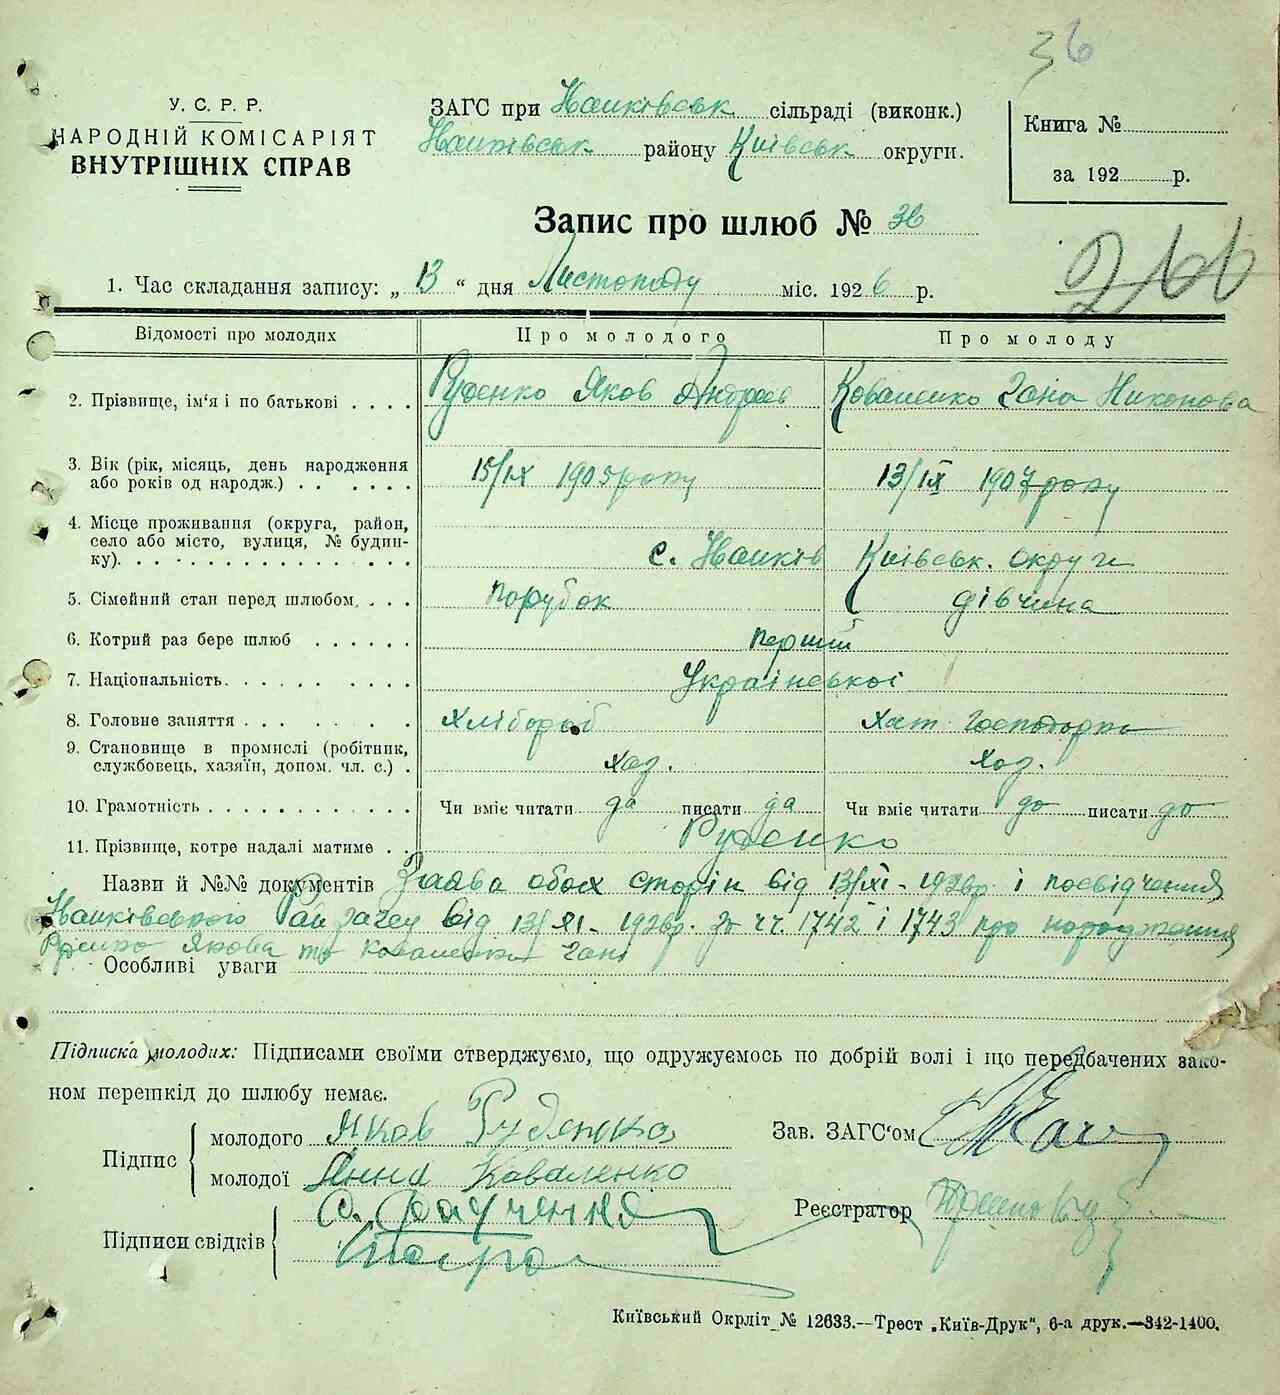 36
У. С. Р. Р.
НАРОДНІЙ КОМІСАРІЯТ
ВНУТРІШНІХ СПРАВ
ЗАГС при сільраді (виконк.)
району Київськ округи.
Книга №
за 192 р.
Запис про шлюб № 36
266
1. Час складання запису: „13“ дня Листопаду міс. 1926 р.
Відомості про молодих Про молодого Про молоду
2. Прізвище, ім'я і по батькові Руденко Яков Андреев Коваленко Ганна Никонова
3. Вік (рік, місяць, день народження або років од народж.) 15/IX 1905 року 13/IX 1907 року
4. Місце проживання (округа, район, село або місто, вулиця, № будинку). с. Київськ. округи
5. Сімейний стан перед шлюбом. парубок дівчина
6. Котрий раз бере шлюб перший
7. Національність. Української
8. Головне заняття хлібороб хат. господарка
9. Становище в промислі (робітник, службовець, хазяїн, допом. чл. с.) хаз. хаз.
10. Грамотність Чи вміє читати да писати да Чи вміє читати да писати да
11. Прізвище, котре надалі матиме Руденко
Назви й №№ документів Заява обоєх сторін від 13/XI - 1926р. і посвідчення
від 13/XI - 1926р. за чч. 1742 і 1743 про народження
Руденко Якова та Коваленко Гані
Особливі уваги
Підписка молодих: Підписами своїми стверджуємо, що одружуємось по добрій волі і що передбачених зако-
ном перешкід до шлюбу немає.
Підпис
молодого Яков Руденко
Зав. ЗАГС'ом
молодої Анна Коваленко
Реєстратор
Підписи свідків
Київський Окрліт № 12633.—Трест „Київ-Друк“, 6-а друк.—342-1400.